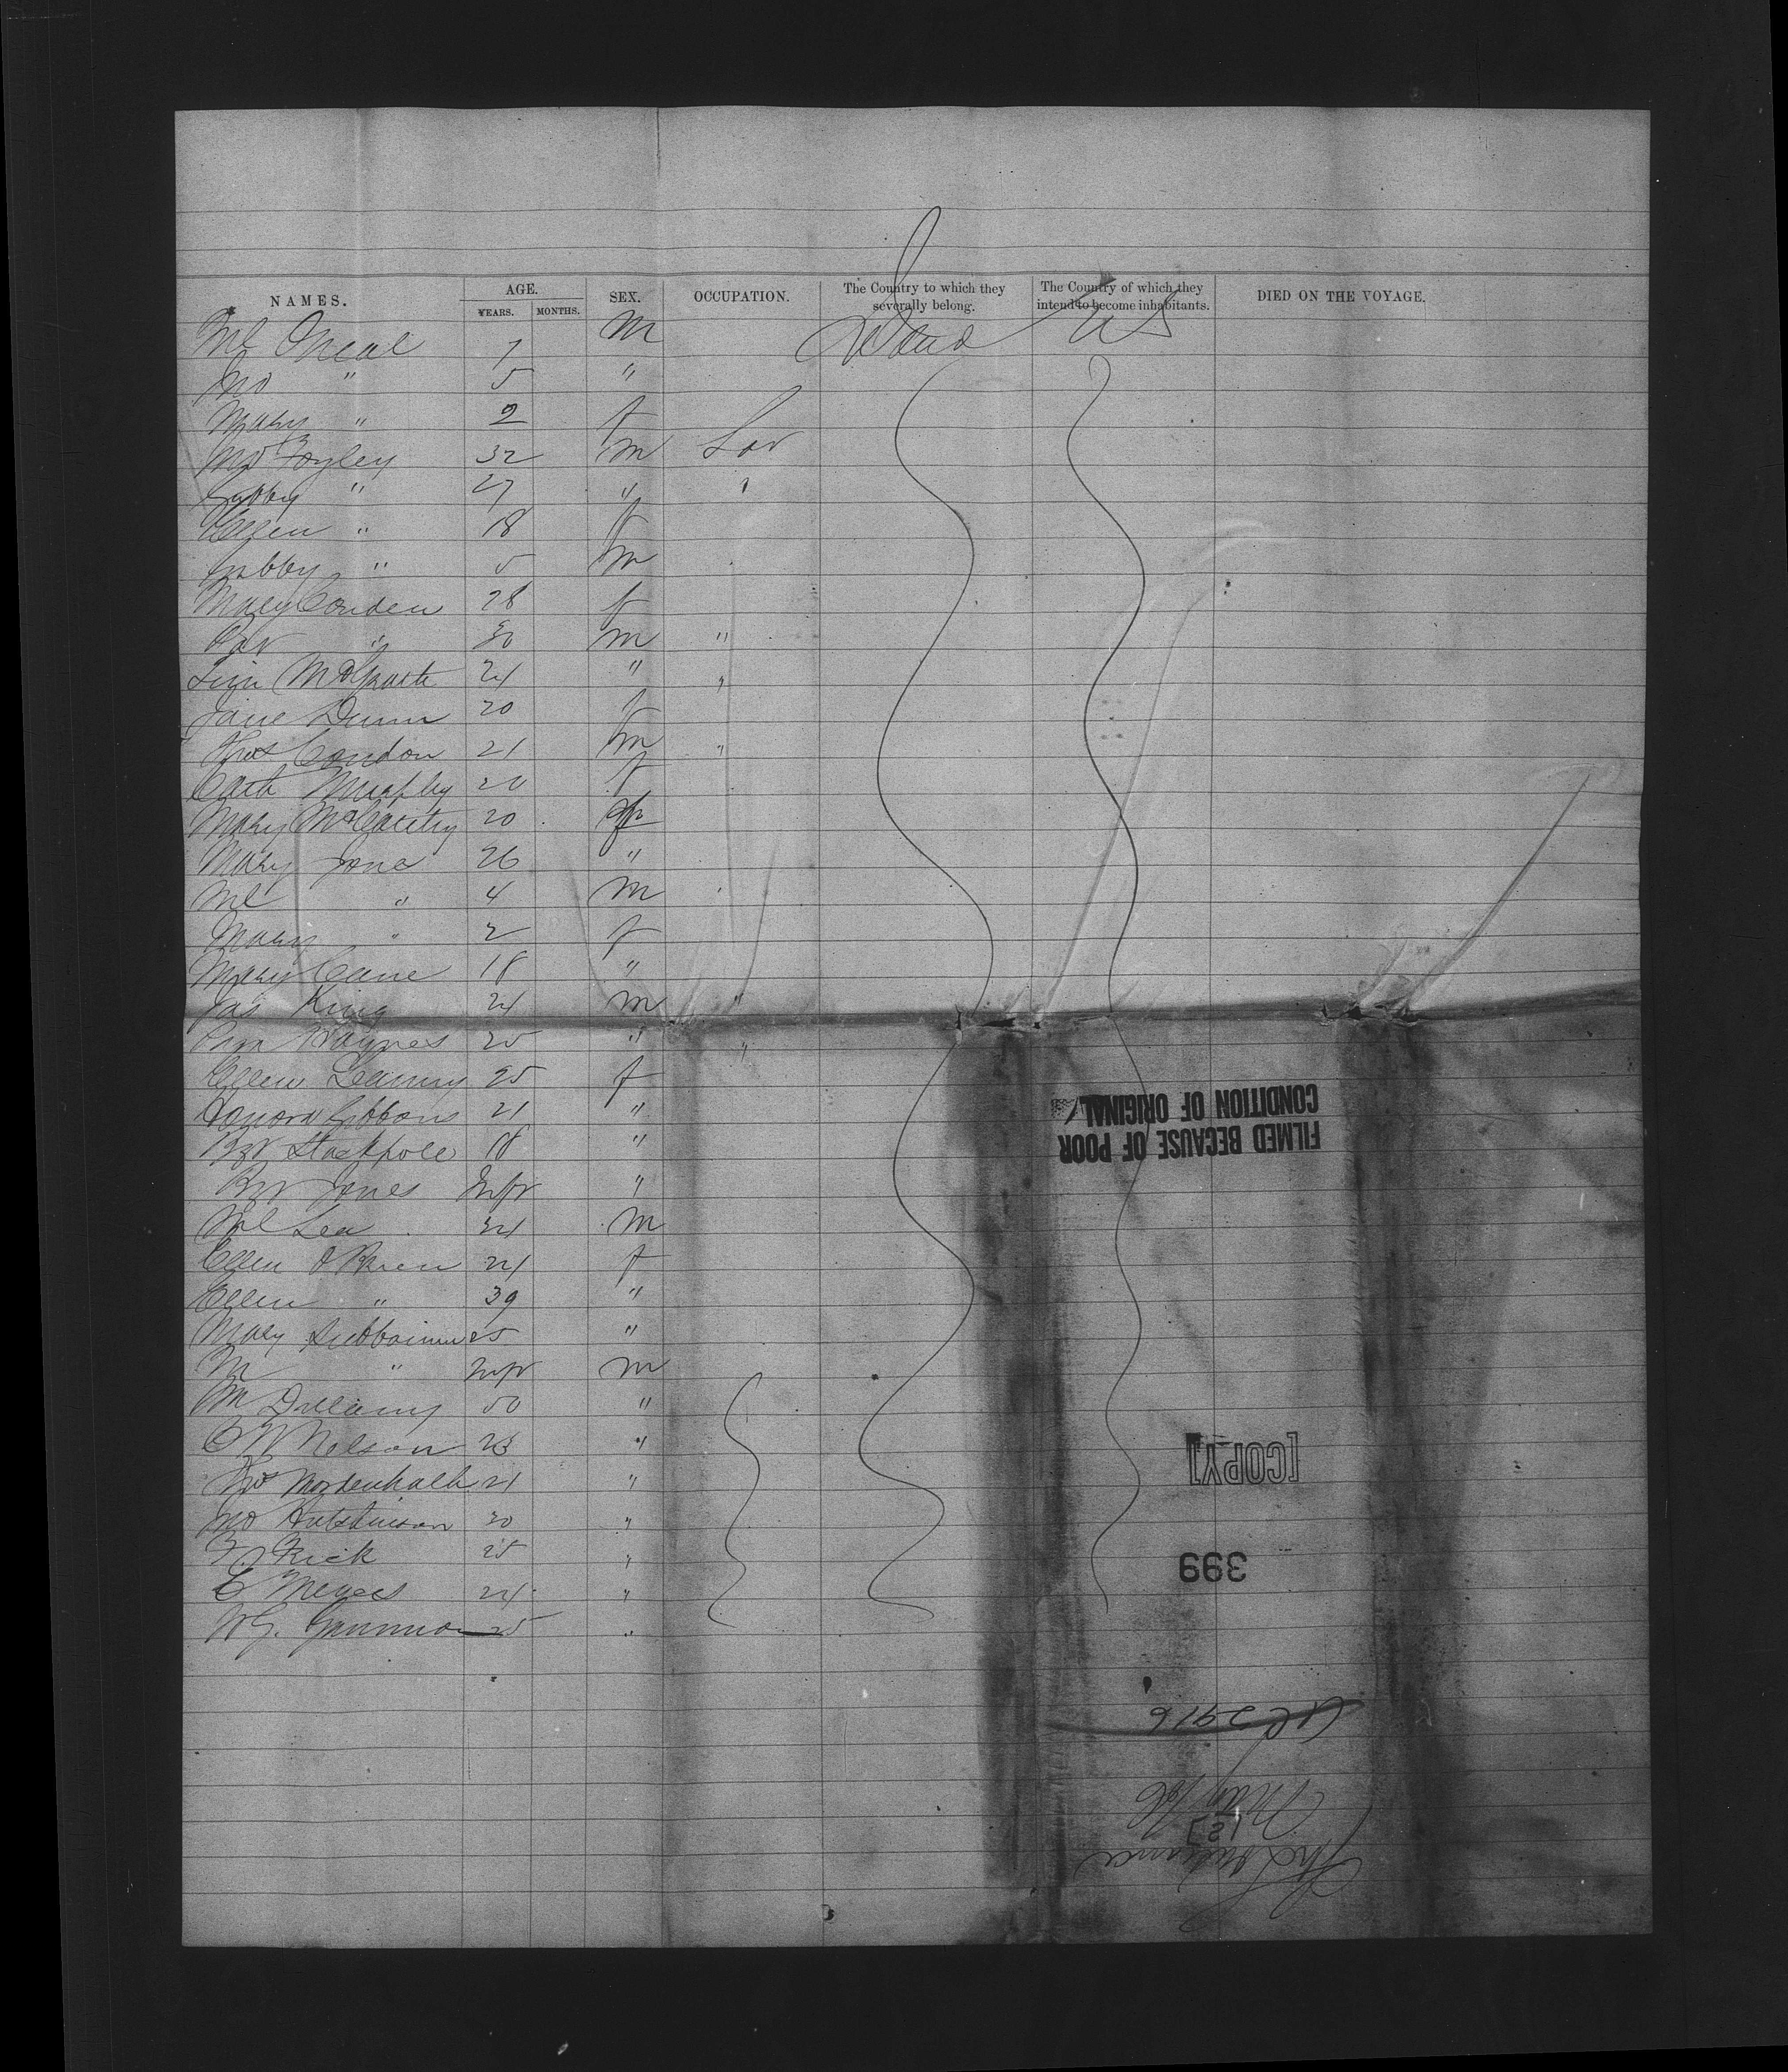 NAMES. AGE. YEARS. MONTHS. SEX. OCCUPATION. The Country to which they severally belong. The Country of which they intend to become inhabitants. DIED ON THE VOYAGE.
Ml Oneal 7 M Ireland US
Jno " 5 "
Mary " 2 f
Jno Foyley 32 m Lav
" 27 " "
Ellen " 18 f
" 5 m
Mary Conden 28 f
" 30 m "
McGrath 24 " "
Jane Dunn 20 f
Thos Condon 21 m "
Cath Murphy 20 f
Mary McCarthy 20 f
Mary Jones 26 "
Ml " 4 m
Mary " 2 f
Mary Cane 18 "
Jas King 24 m "
Haynes 25 " "
Ellen Leamy 25 f
Honora Gibbons 21 "
Bgt Stackpole 18 "
Bgt Jones Infr "
Ml Lea 34 m
Ellen O Brien 24 f
Ellen " 39 "
Mary 25 "
M " Infr m
M 50 "
C W Nelson 23 "
Mordenhalk 21 "
Jno Hutchinson 30 "
Frick 25 "
E Meyers 24 "
W G. 25 "
FILMED BECAUSE OF POOR
CONDITION OF ORIGINAL
[COPY]
399
2916
May
[2]